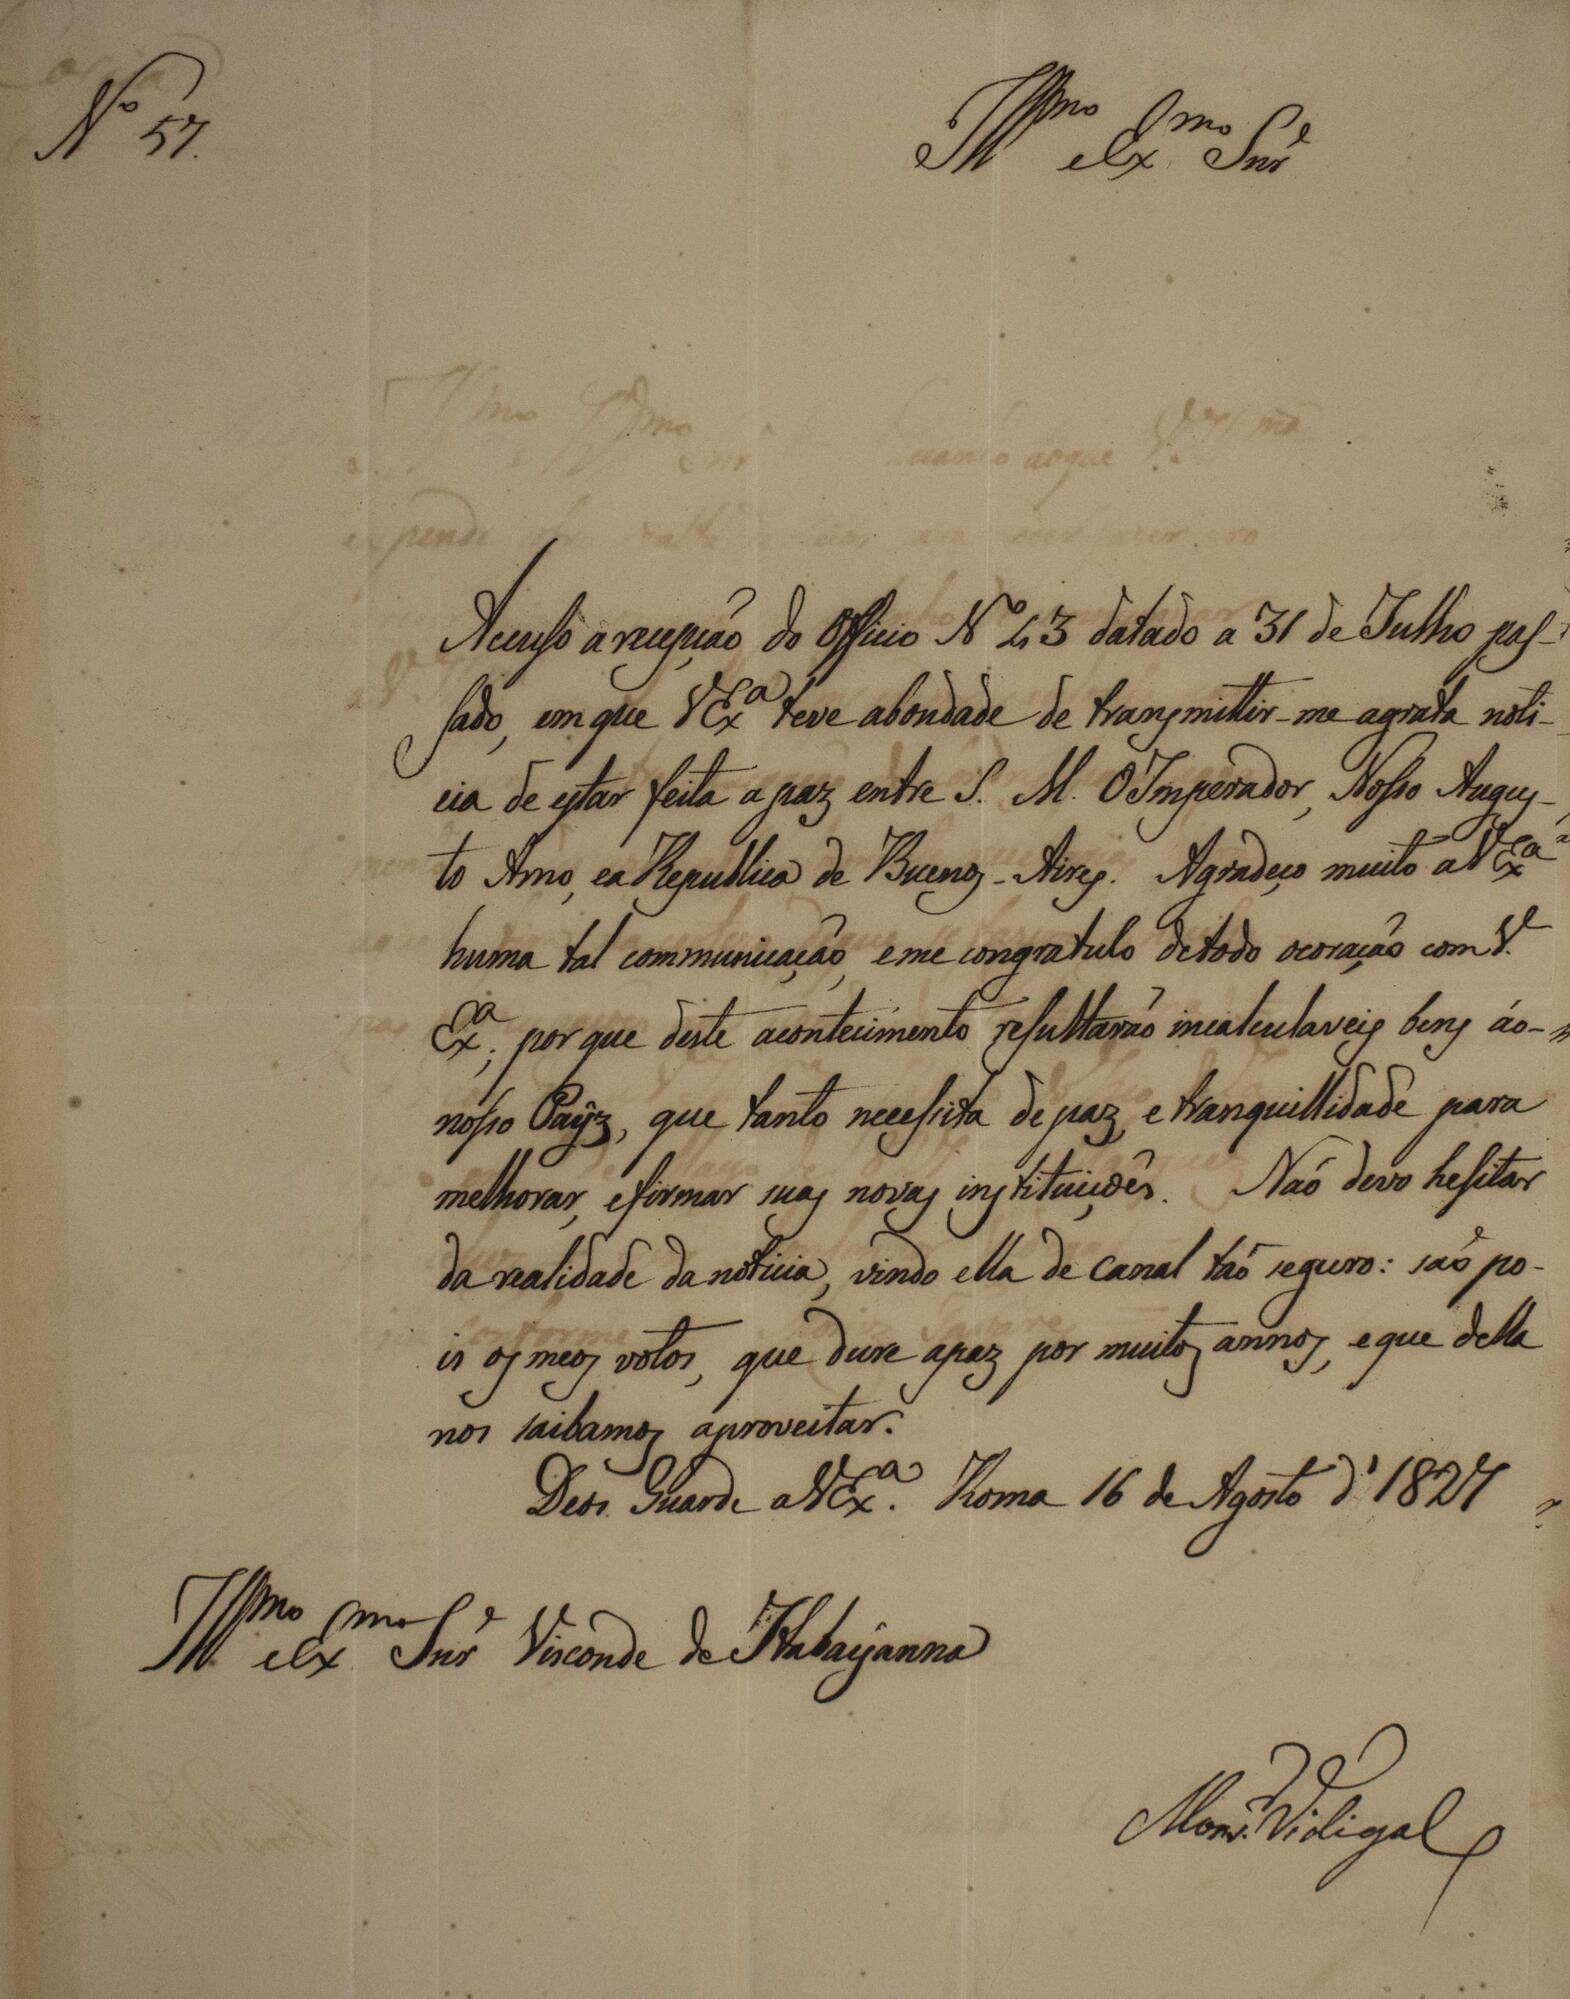 Nº 57.
Illmo e Exmo Snr
Accuso a recepção do Officio Nº 43 datado a 31 de Julho pas-
sado, em que V Exa teve abondade de transmittir-me agrata noti-
cia de estar feita a paz entre S. M. O Imperador, Nosso Augus-
to Amo, ea Republica de Buenos-Aires. Agradeço muito a V Exa
huma tal communicação, eme congratulo detodo ocoração com V.
Exa; por que deste acontecimento resultarão incalculaveis bens áo-
nosso Paÿz, que tanto necessita de paz, e tranquillidade para
melhorar, efirmar suas novas instituiçoẽs. Naõ devo hesitar
da realidade da noticia, vindo ella de canal taõ seguro: saõ po-
is os meos votos, que dure apaz por muitos annos, e que della
nos saibamos aproveitar.
Deos Guarde a V Exa. Roma 16 de Agosto d' 1827
Illmo e Exmo Snr Visconde de Itabaÿanna
Monsr. Vidigal